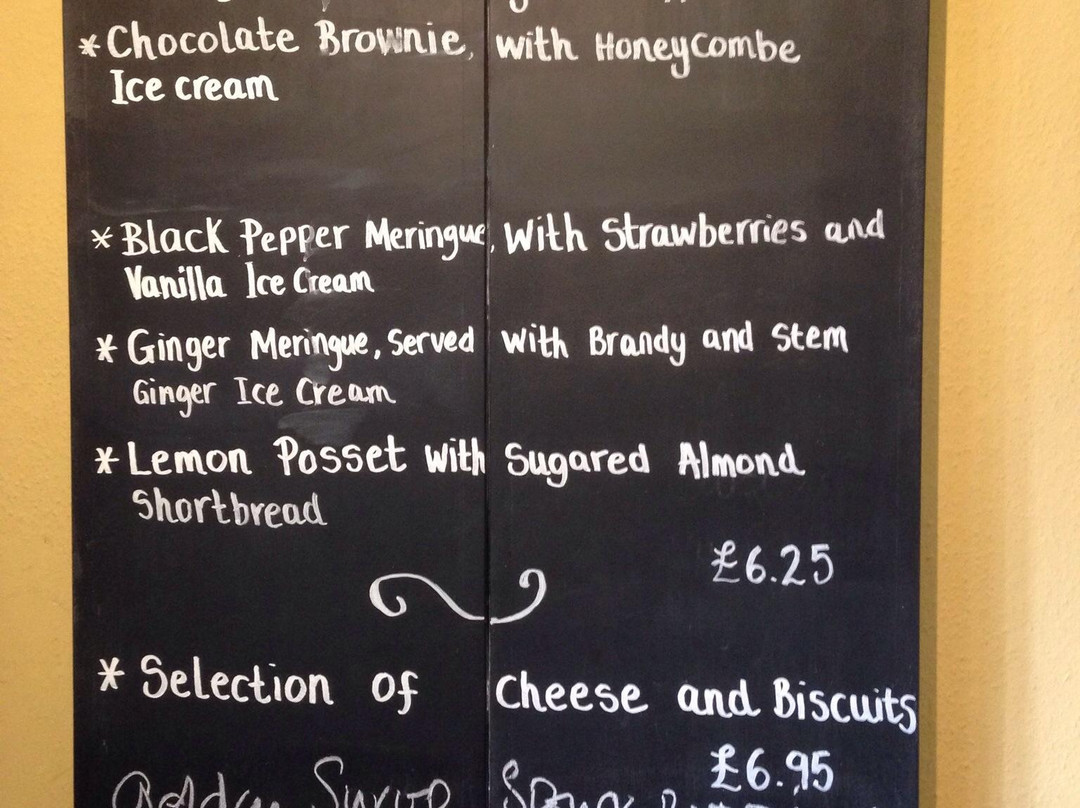 *Chocolate Brownie, with Honeycombe
Ice cream
*Black Pepper Meringue, With Strawberries and
Vanilla Ice Cream
*Ginger Meringue, Served with Brandy and Stem
Ginger Ice Cream
*Lemon Posset with Sugared Almond
Shortbread
£6.25
*Selection of Cheese and Biscuits
£6.95
Golden Syrup